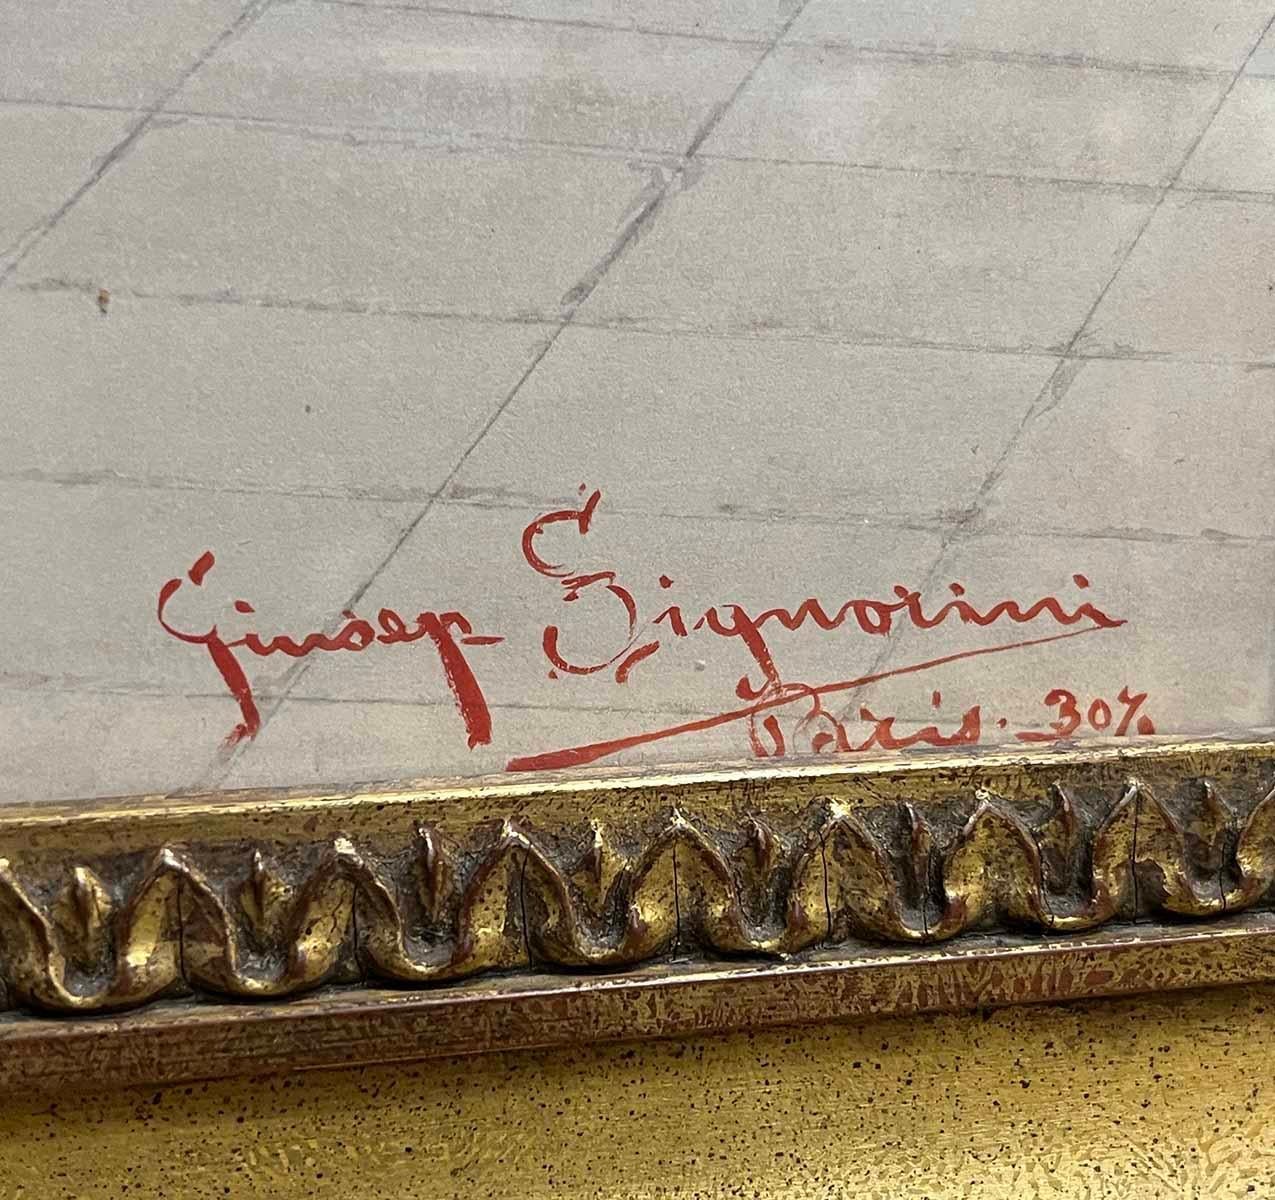 Giusep Signorini
Paris. 30%